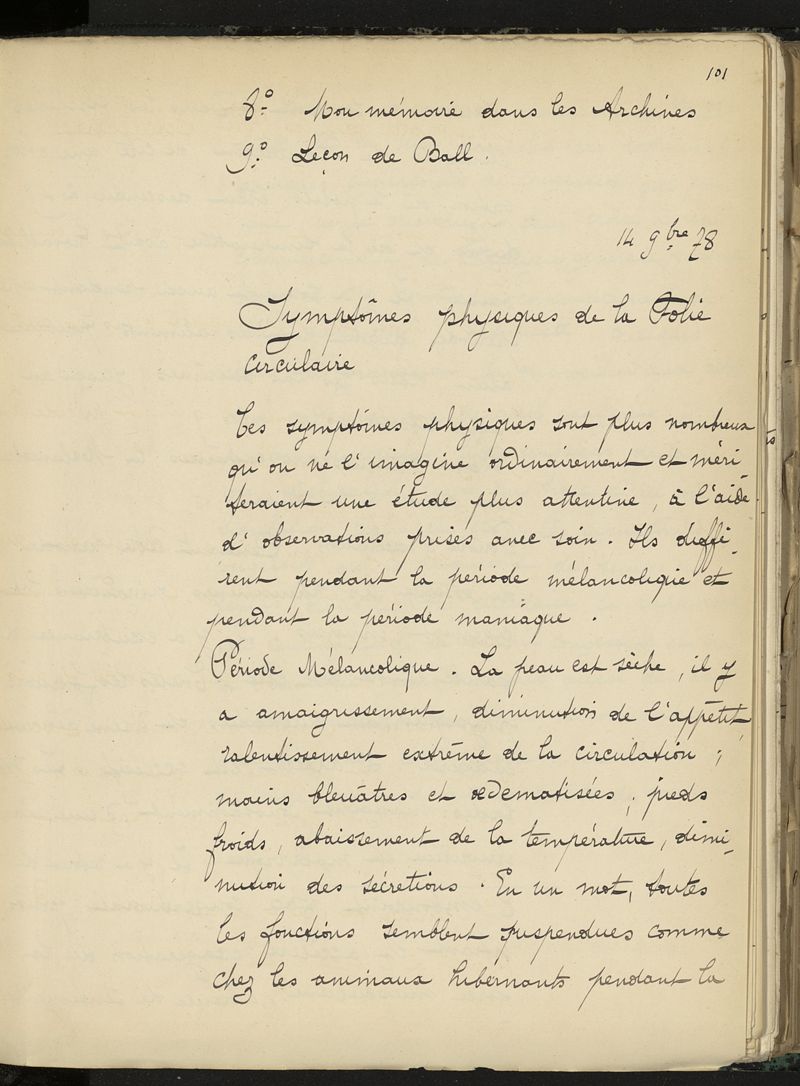 101
8.° Mon mémoire dans les Archives
9.° Leçon de Ball.
14 9bre 78
Symptômes physiques de la Folie
circulaire
Les symptômes physiques sont plus nombreux
qu'on ne l'imagine ordinairement et méri-
teraient une étude plus attentive, à l'aide
d'observations prises avec soin. Ils diffè-
rent pendant la période mélancolique et
pendant la période maniaque.
Période Mélancolique. La peau est sèche, il y
a amaigrissement, diminution de l'appétit
ralentissement extrême de la circulation;
mains bleuâtres et œdematisées, pieds
froids, abaissement de la température, dimi-
nution des sécretions. En un mot, toutes
les fonctions semblent suspendues comme
chez les animaux hibernants pendant la